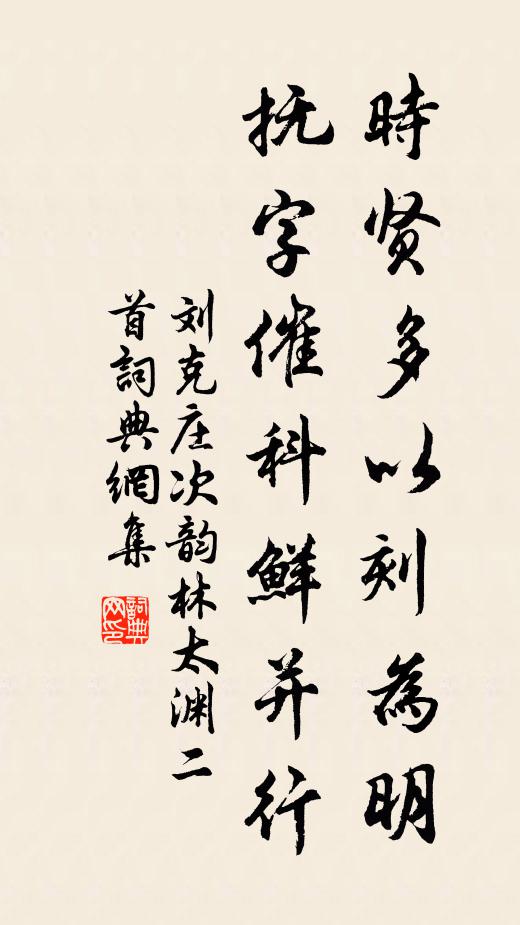 時贤多以刻為明
抚字催科鮮并行
刘克庄次韵林太渊二
首詞典網集
詞典
网印